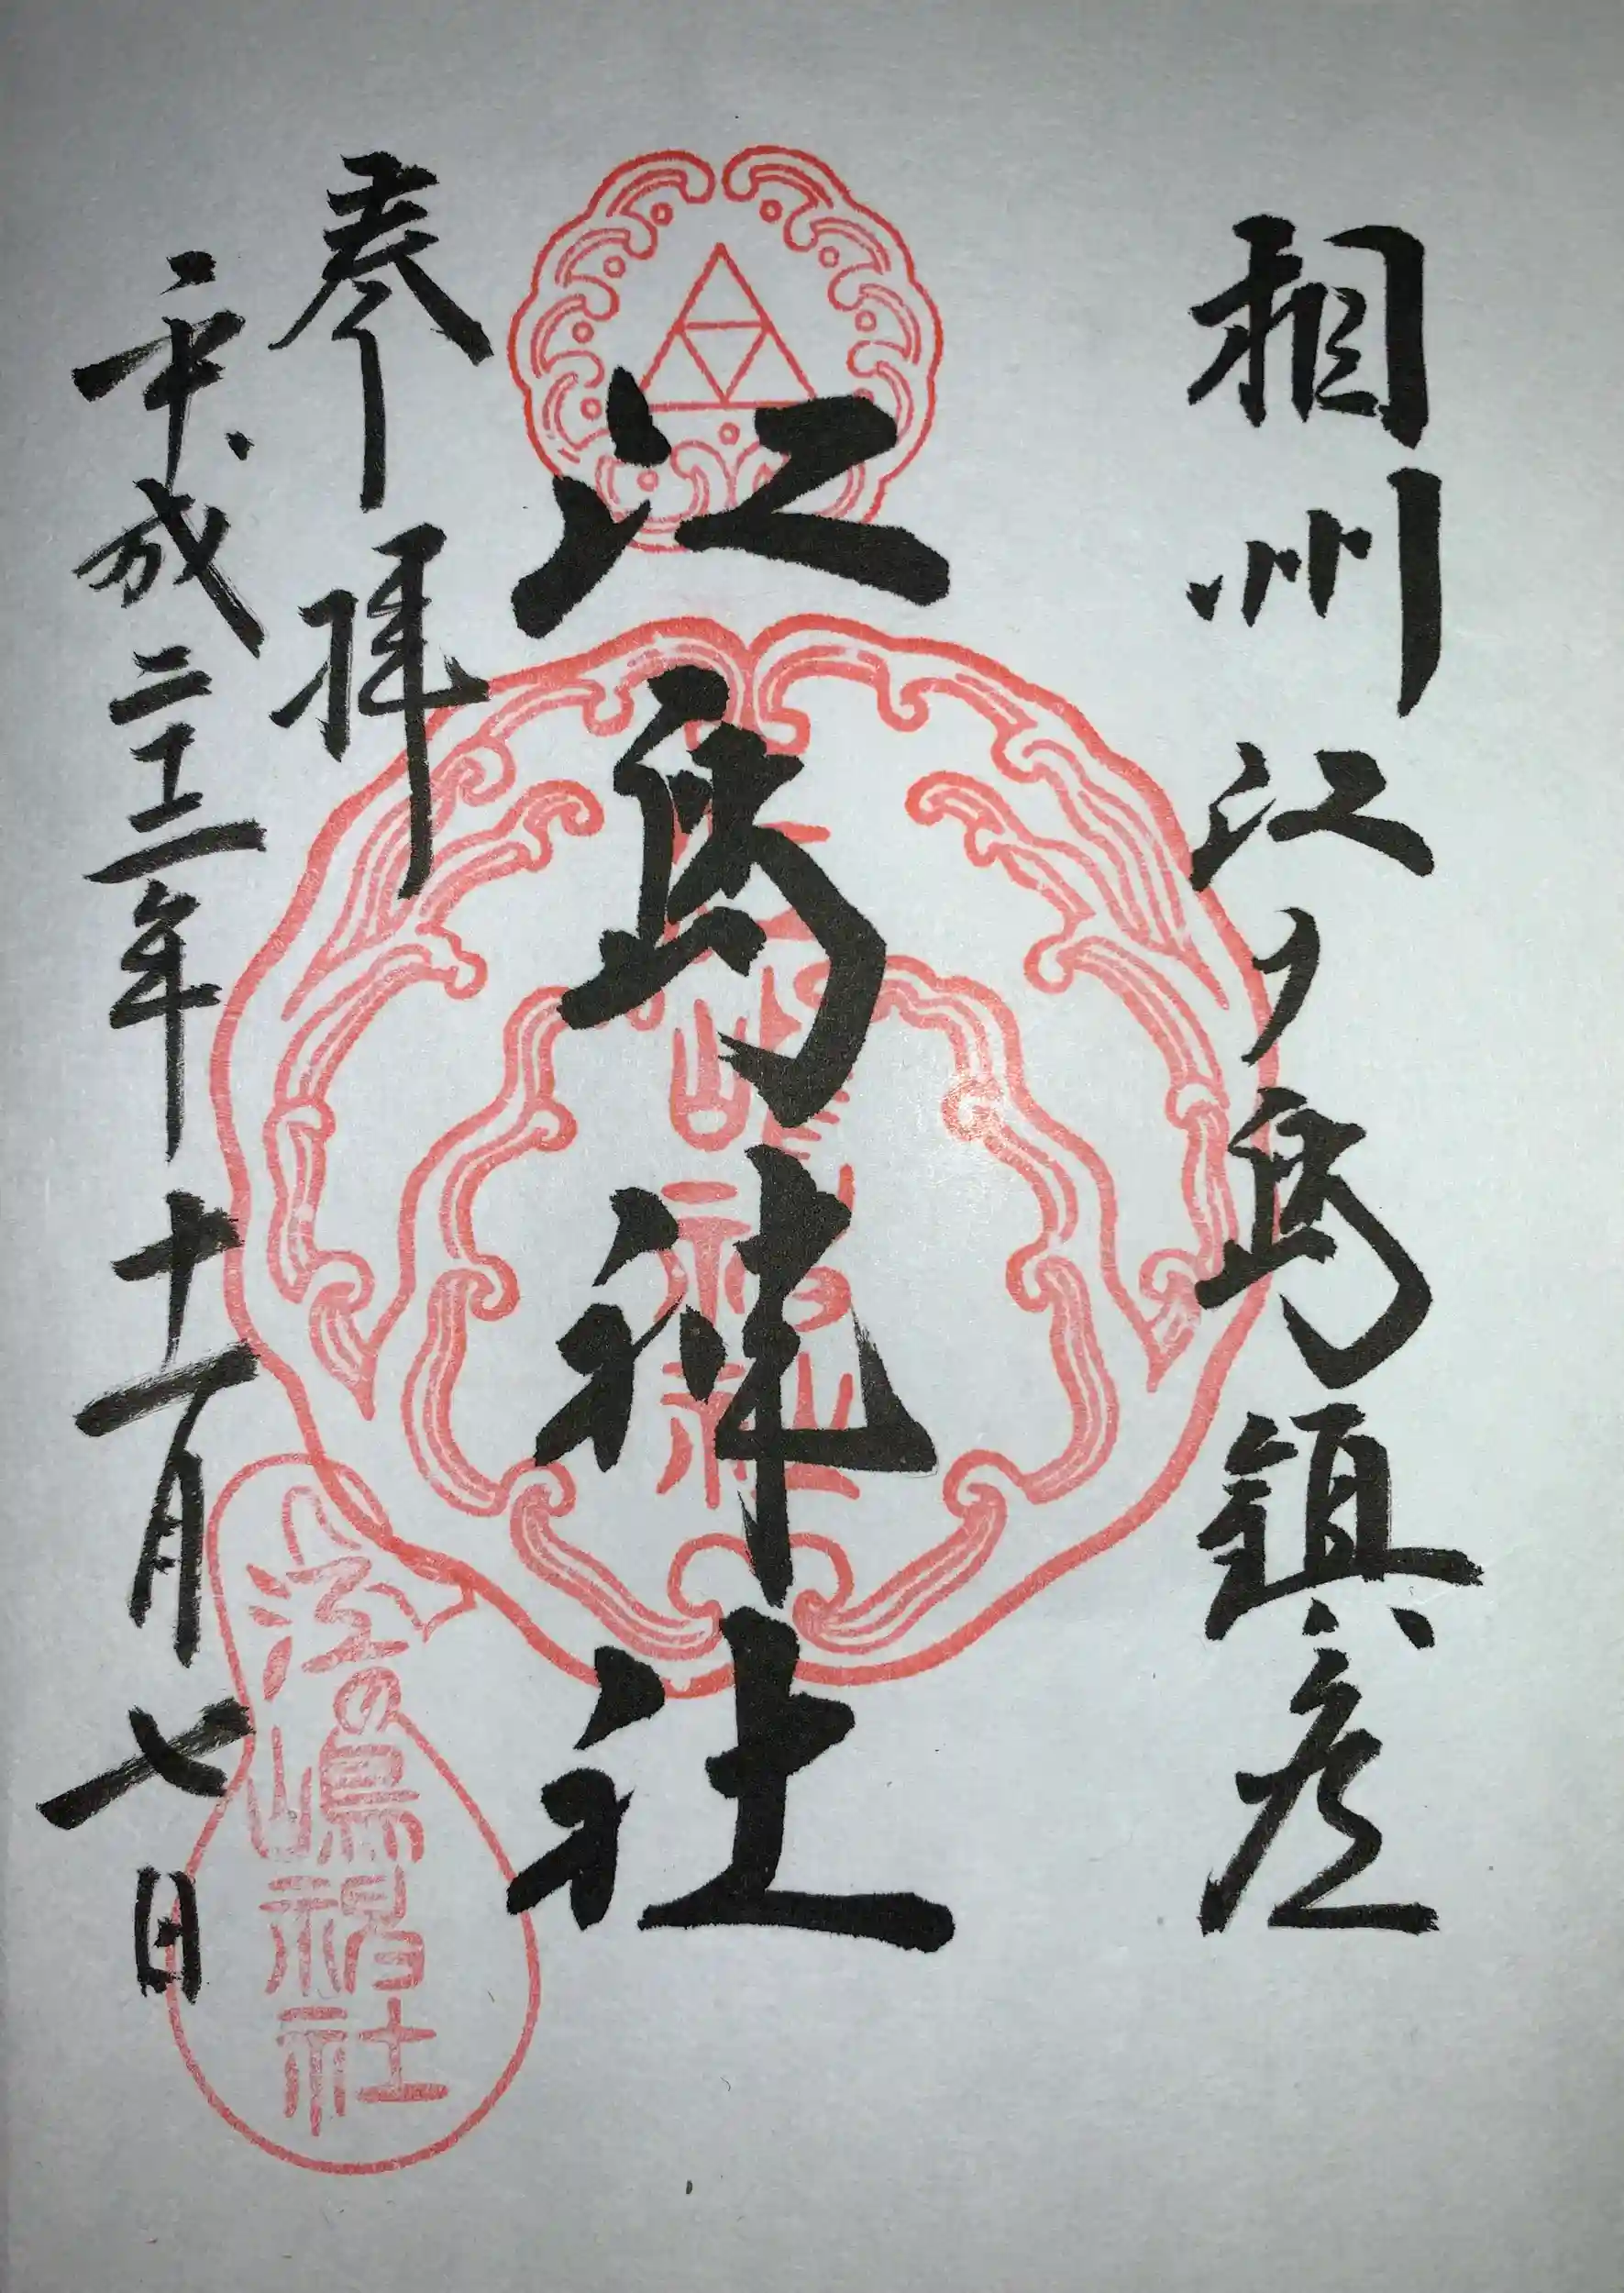 相州江ノ島鎮座
江島神社
参拝
平成二十三年十一月七日
江の嶋神社